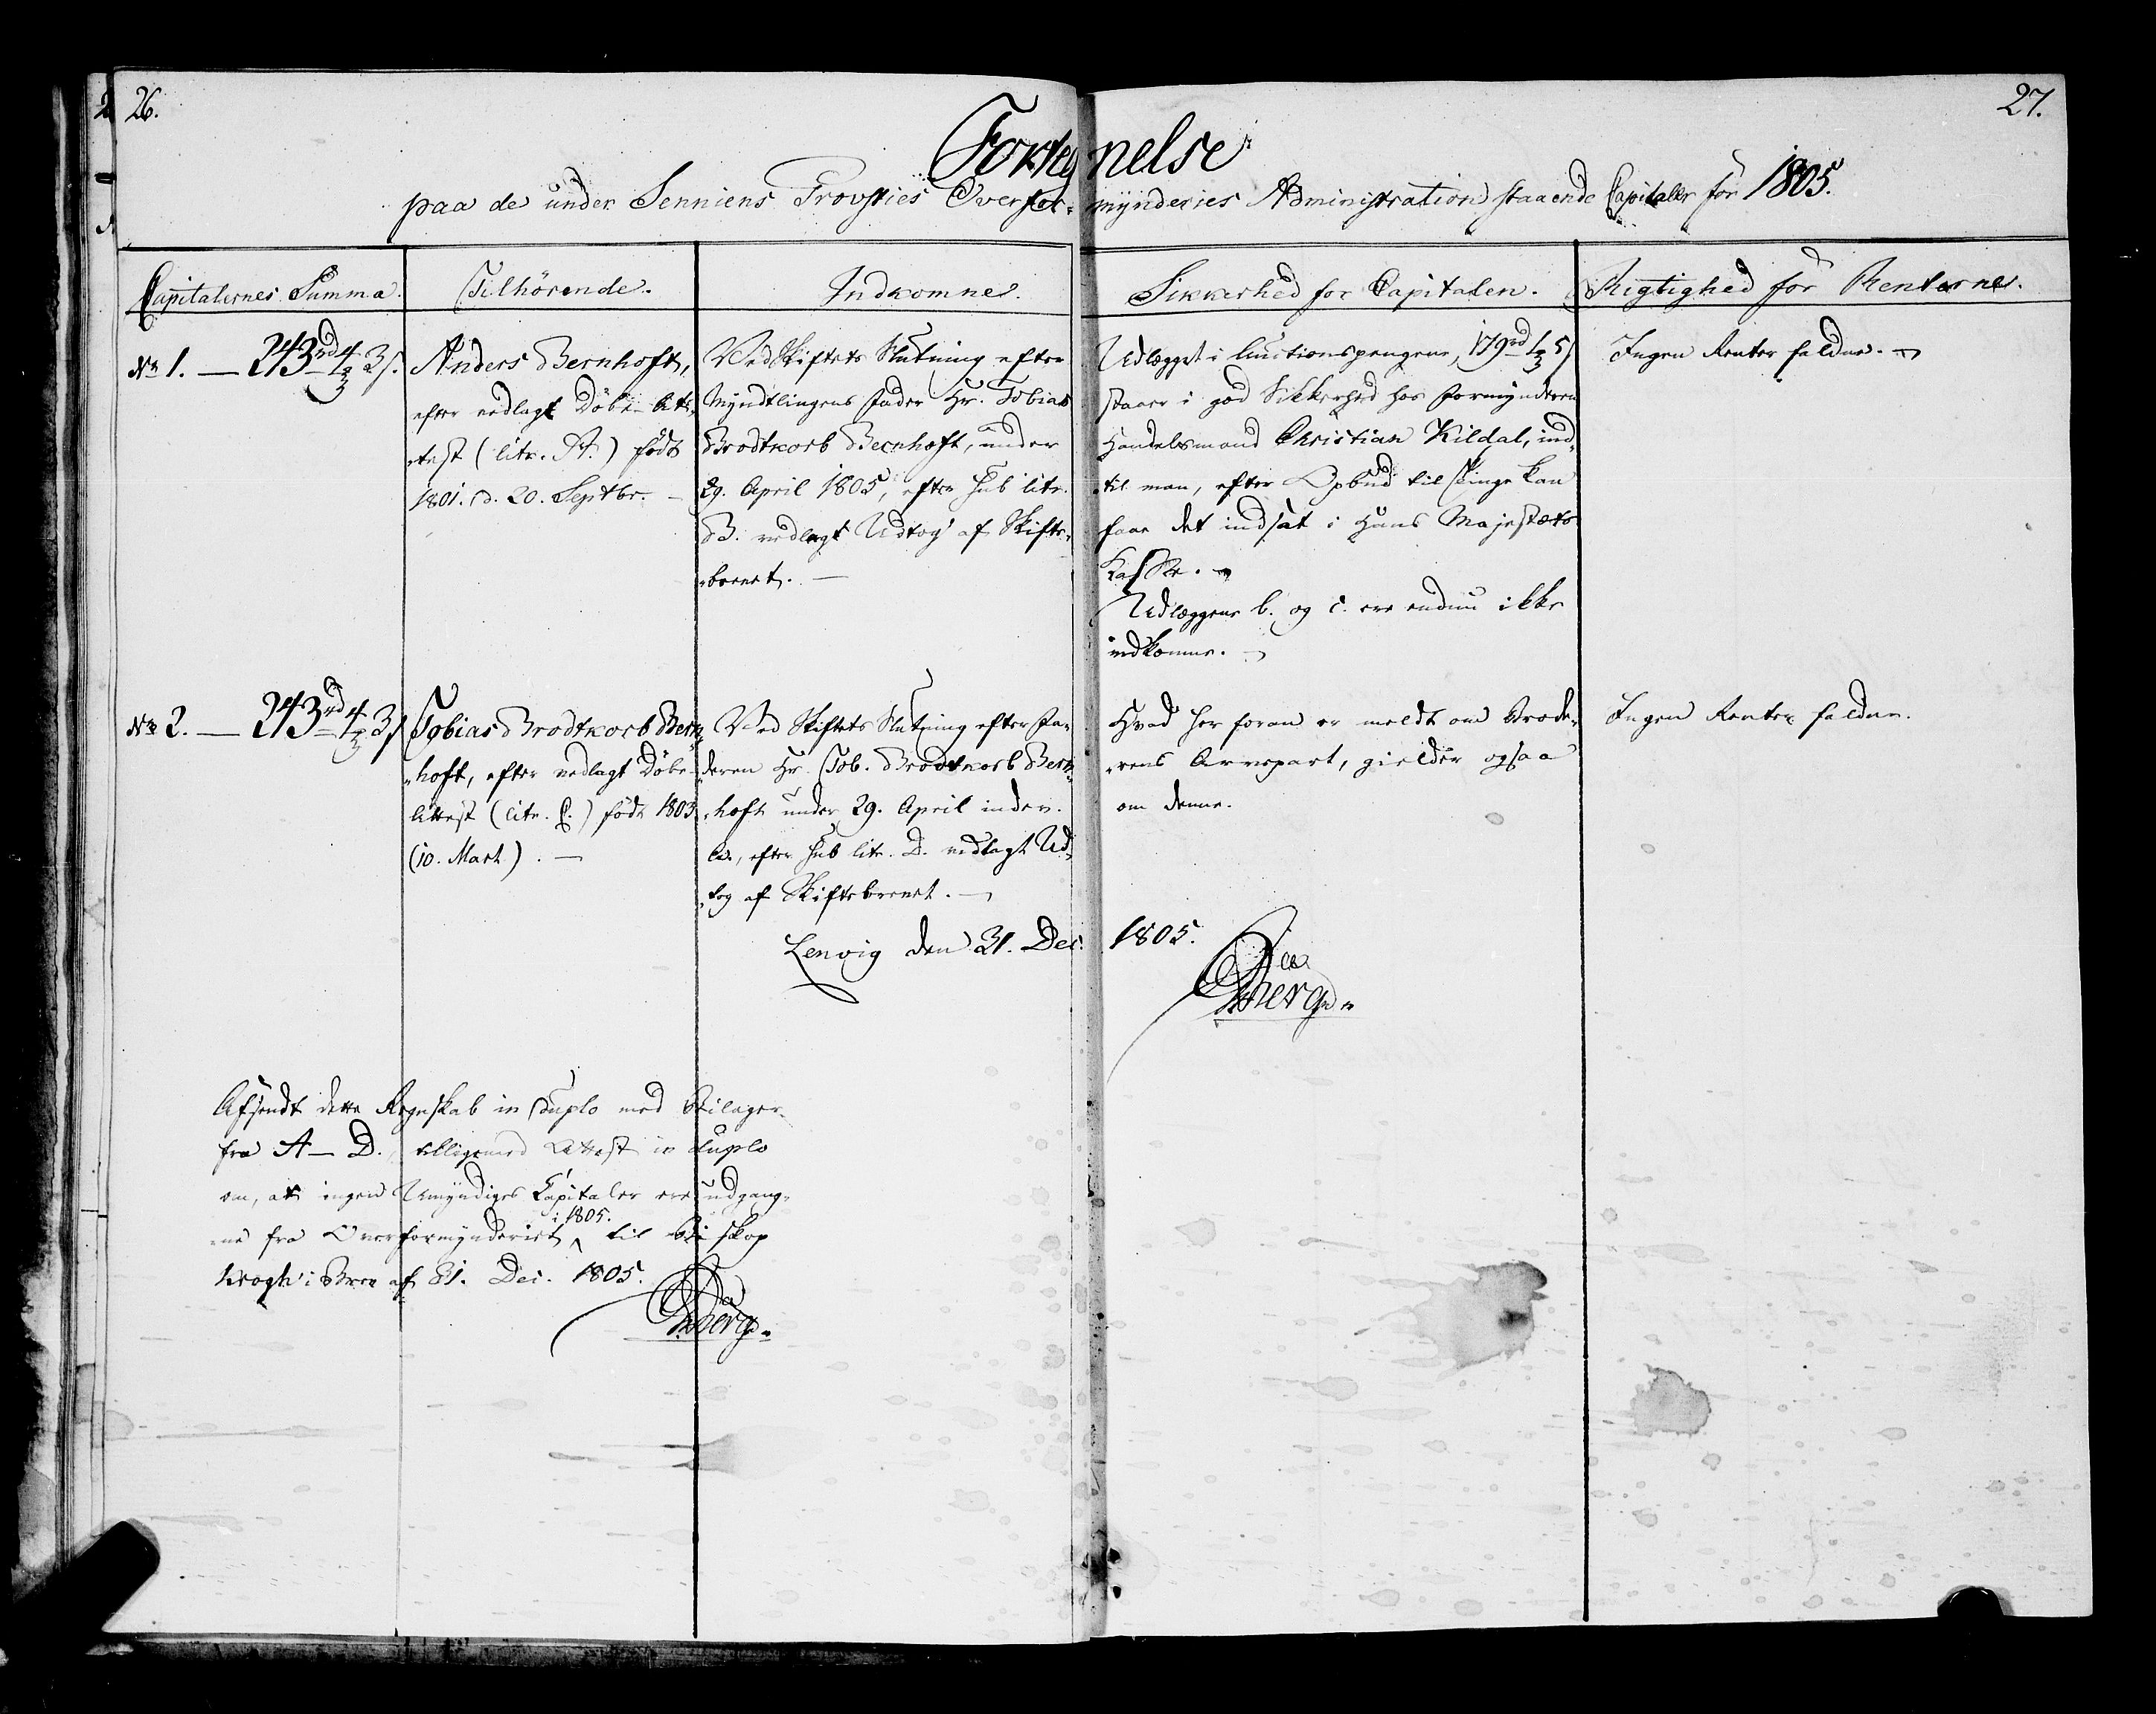 26.
27.
Fortegnelse
paa de under Senniens Provsties Overfor-mynderies Administration staaende Capitaler for 1805.
Capitalernes Summa.
Tilhörende.
Indkomne.
Sikkerhed for Capitalen.
Rigtighed for Renterne.
No 1. — 243 rd 4 3 s.
Anders Bernhoft,
efter vedlagt Döbe-At-
-test (litr. A.) född
1801. d. 20. Septbr. —
Ved Skiftets Slutning efter
Myndtlingens Fader Hr. Tobias
Brodtkorb Bernhoft, under
29. April 1805, efter sub litr.
B. vedlagt Udtog af Skifte-
-brevet. —
Udlægget i Auctionspengene, 179 rd 5 s
staaer i god Sikkerhed hos Formynderen
Handelsmand Christian Kildal, ind-
-til man, efter Opbud til Tinge kan
faae det indsat i Hans Majestæts
Kasse. —
Udlæggene b. og c. ere endnu ikke
indkomne. —
Ingen Renter faldne. —
No 2. — 243 rd 4 3 s
Tobias Brodtkorb Bern-
-hoft, efter vedlagt Döbe-
Attest (litr. C.) född 1803
(10. Mart.). —
Ved Skiftets Slutning efter Fa-
deren Hr. Tob. Brodtkorb Bern-
-hoft under 29. April inden.
a., efter sub litr. D. vedlagt Ud-
-tog af Skiftebrevet. —
Hvad her foran er meldt om Brode-
-rens Arvepart, gielder ogsaa
om denne.
Ingen Renter faldne.
Lenvig den 31. Dec. 1805.
Afsendt dette Regnskab in duplo med Bilager
fra A — D., tilligemed Attest in duplo
om, at ingen Umyndiges Capitaler ere udgang-
-ne fra Overformynderiet i 1805. til Biskop
Krogh i Brev af 31. Dec. 1805.